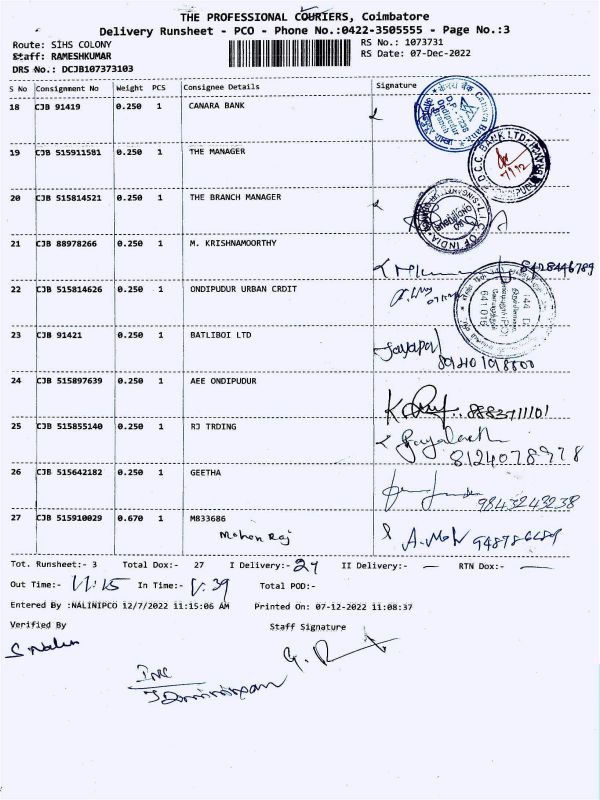 THE PROFESSIONAL COURIERS, Coimbatore
Delivery Runsheet - PCO - Phone No.:0422-3505555 - Page No.:3
Route: SIHS COLONY
RS No.: 1073731
Staff: RAMESHKUMAR
RS Date: 07-Dec-2022
DRS No.: DCJB107373103
S No Consignment No Weight PCS Consignee Details Signature
18 CJB 91419 0.250 1 CANARA BANK
19 CJB 515911581 0.250 1 THE MANAGER
20 CJB 515814521 0.250 1 THE BRANCH MANAGER
21 CJB 88978266 0.250 1 M. KRISHNAMOORTHY
8428446789
22 CJB 515814626 0.250 1 ONDIPUDUR URBAN CRDIT
641 016
23 CJB 91421 0.250 1 BATLIBOI LTD
Jayapal
24 CJB 515897639 0.250 1 AEE ONDIPUDUR
8883711101
25 CJB 515855140 0.250 1 RJ TRDING
8124078978
26 CJB 515642182 0.250 1 GEETHA
9843243238
27 CJB 515910029 0.670 1 M833686
Mohan Raj
Tot. Runsheet:- 3 Total Dox:- 27 I Delivery:- 27 II Delivery:- — RTN Dox:- —
Out Time:- 11.15 In Time:- 1.39 Total POD:-
Entered By :NALINIPCO 12/7/2022 11:15:06 AM Printed On: 07-12-2022 11:08:37
Verified By Staff Signature
S. Nalini